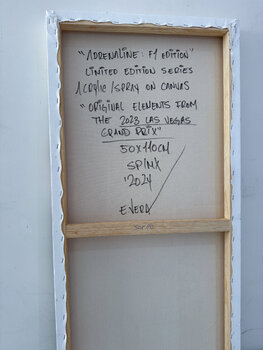 "ADRENALINE: F1 EDITION"
LIMITED EDITION SERIES
ACRYLIC/SPRAY ON CANVAS
"ORIGINAL ELEMENTS FROM
THE 2023 LAS VEGAS
GRAND PRIX"
50X110CM
SPAIN
'2024
E.VERA